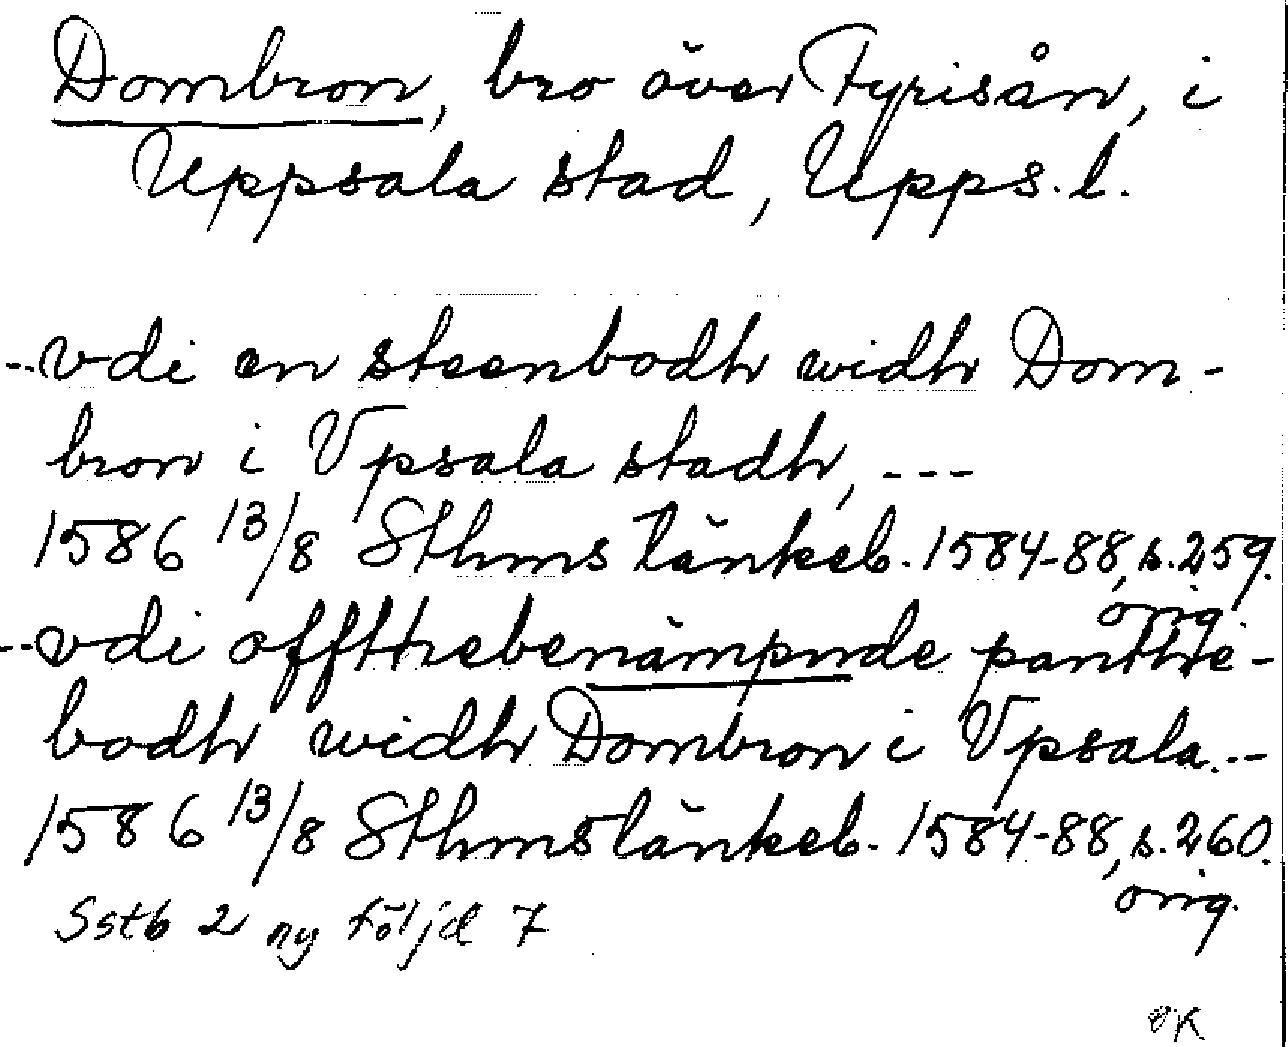 Dombron, bro över Fyrisån, i
Uppsala stad, Upps. l.
--vdi en steenbodh widh Dom-
bron i Vpsala stadh, ---
1586 13/8 Sthms tänkeb. 1584-88, s. 259.
orig.
--vdi offthebenämpnde panthe-
bodh widh Dombron i Vpsala.--
1586 13/8 Sthms tänkeb. 1584-88, s. 260.
orig.
Sstb 2 ny följd 7